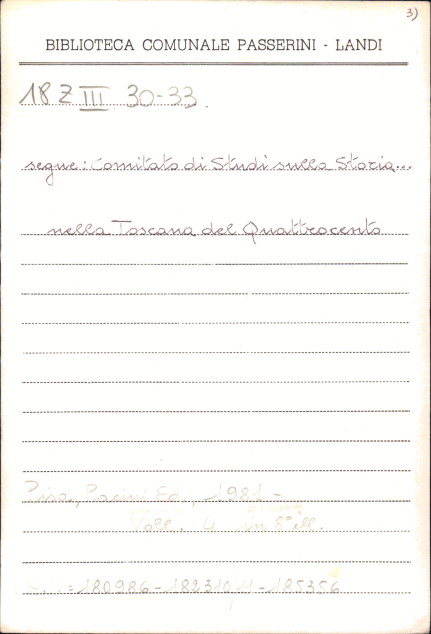 3)
BIBLIOTECA COMUNALE PASSERINI - LANDI
18 Z III 30-33.
segue: Comitato di Studi sulla Storia...
nella Toscana del Quattrocento
Pisa, Pacini Ed., 1981 -
Voll. 4 in 8° ill.
180986-182310 -185356